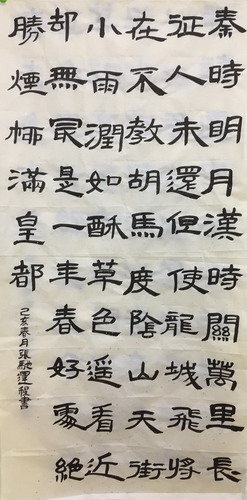 秦時明月漢時關萬里長
征人未還但使龍城飛將
在不教胡馬度陰山天街
小雨潤如酥草色遙看近
却無最是一年春好處絕
勝煙柳滿皇都
己亥春月張馳書